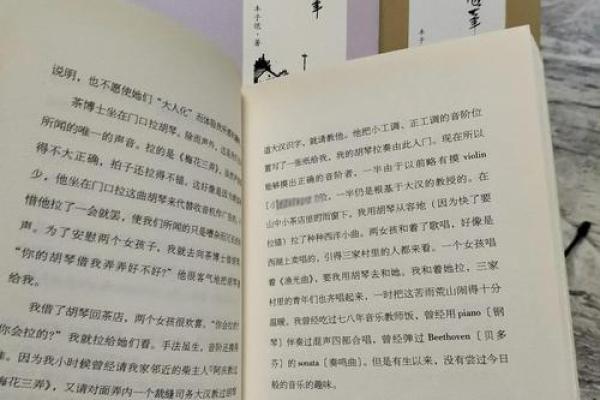 丰子恺·著
丰子
说明，也不愿使她们“大人化”而体验我所
茶博士坐在门口拉胡琴。除雨声外，这是我们
所闻的唯一的声音。拉的是《梅花三弄》，虽然声音
得不大正确，拍子还拉得不错。这好像是因为顾客
少，他坐在门口拉这曲胡琴来代替收音机作广告的。
惜他拉了一会就罢，使我们所闻的只是嘈杂而冗长的雨
声。为了安慰两个女孩子，我就去向茶博士借胡
“你的胡琴借我弄弄好不好？”他很客气地把胡琴
给我。
我借了胡琴回茶店，两个女孩很欢喜。“你会
你会拉的？”我就拉给她们看。手法虽生，音阶还摸
准。因为我小时候曾经请我家邻近的柴主人阿庆教过
梅花三弄》，又请对面弄内一个裁缝司务大汉教过
道大汉识字，就请教他。他把小工调、正工调的音阶位
置写了一张纸给我，我的胡琴拉奏由此入门。现在所以
能够摸出正确的音阶者，一半由于以前略有摸 violin
在，一半仍是根基于大汉的教授的。在
山中小茶店里的雨窗下，我用胡琴从容地（因为快了要
拉错）拉了种种西洋小曲。两女孩和着了歌唱，好像是
西湖上卖唱的，引得三家村里的人都来看。一个女孩唱
着《渔光曲》，要我用胡琴去和她。我和着她拉，三家
村里的青年们也齐唱起来，一时把这苦雨荒山闹得十分
温暖。我曾经吃过七八年音乐教师饭，曾经用 piano［钢
琴］伴奏过混声四部合唱，曾经弹过 Beethoven［贝多
芬］的 sonata［奏鸣曲］。但是有生以来，没有尝过今日
般的音乐的趣味。